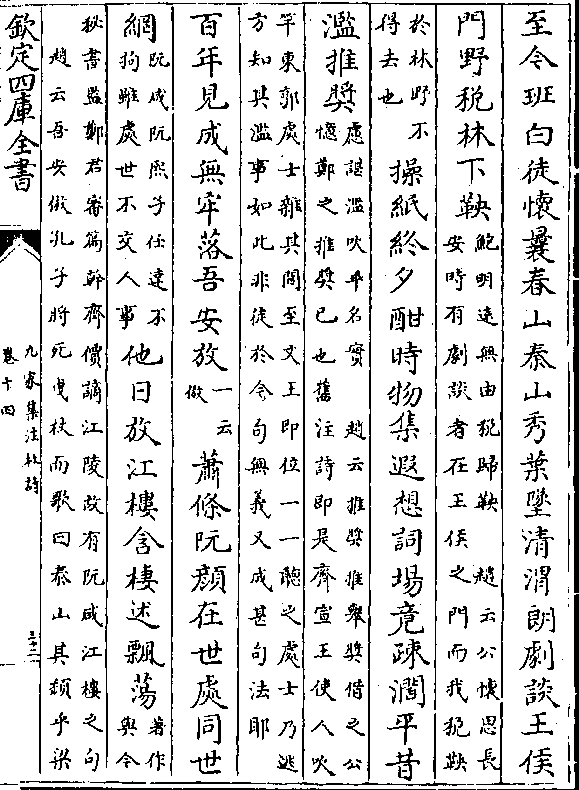 至今班白徒懷曩春山秦山秀葉墜清渭朗劇談王侯
門野稅林下鞅
鮑明遠無由稅歸鞅
趙云公懷思長
安時有劇談者在王侯之門而我稅鞅
於林野不
得去也
操紙終夕酣時物集遐想詞場竟疎濶平昔
濫推奬
慮諶濫吹乎名實
趙云推奬推舉奬借之公
懷鄭之推奬已也舊注詩即是齊宣王使人吹
竽東郭處士雜其間至文王即位一一聽之處士乃逃
方知其濫事如此非徒於今句無義又成甚句法耶
百年見成無牢落吾安放
一云
倣
蕭條阮顔在世處同世
網
阮咸阮熙子任達不
拘雖處世不交人事
他日放江樓含棲述飄蕩
著作
與今
秘書監鄭君審篇幹齊價謫江陵故有阮咸江樓之句
趙云吾安倣孔子將死曳杖而歌曰泰山其頽乎梁
欽定四庫全書
九家集注杜詩
卷十四
三十二